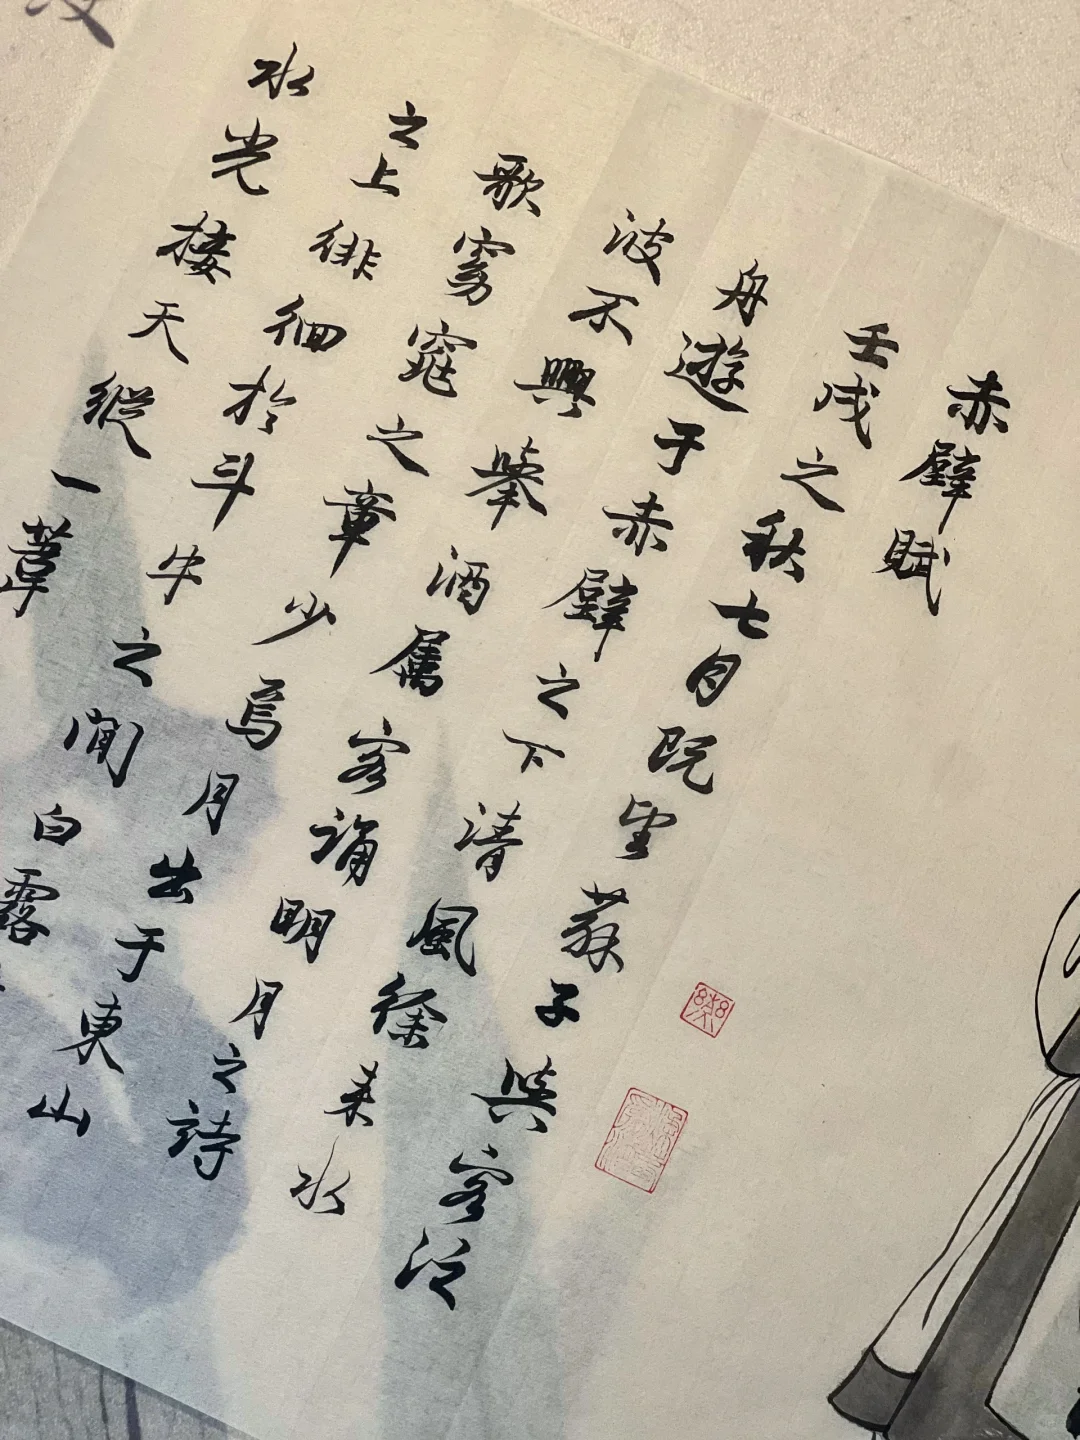 赤壁賦
壬戌之秋七月既望蘇子與客泛
舟遊于赤壁之下清風徐来水
波不興舉酒属客誦明月之詩
歌窈窕之章少焉月出于東山
之上徘徊於斗牛之間白露
水光接天縱一葦